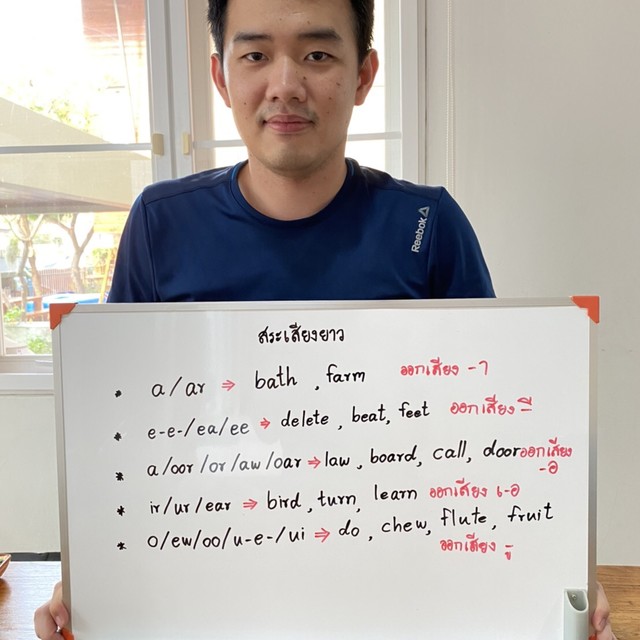 Reebok
สระเสียงยาว
* a/ar ⇒ bath , farm ออกเสียง -า
* e-e-/ea/ee ⇒ delete , beat, feet ออกเสียง -ี
* a/oor/or/aw/oar ⇒ law , board, call, door ออกเสียง
-อ
* ir/ur/ear ⇒ bird , turn , learn ออกเสียง เ-อ
* o/ew/oo/u-e-/ui ⇒ do , chew, flute , fruit
ออกเสียง -ู